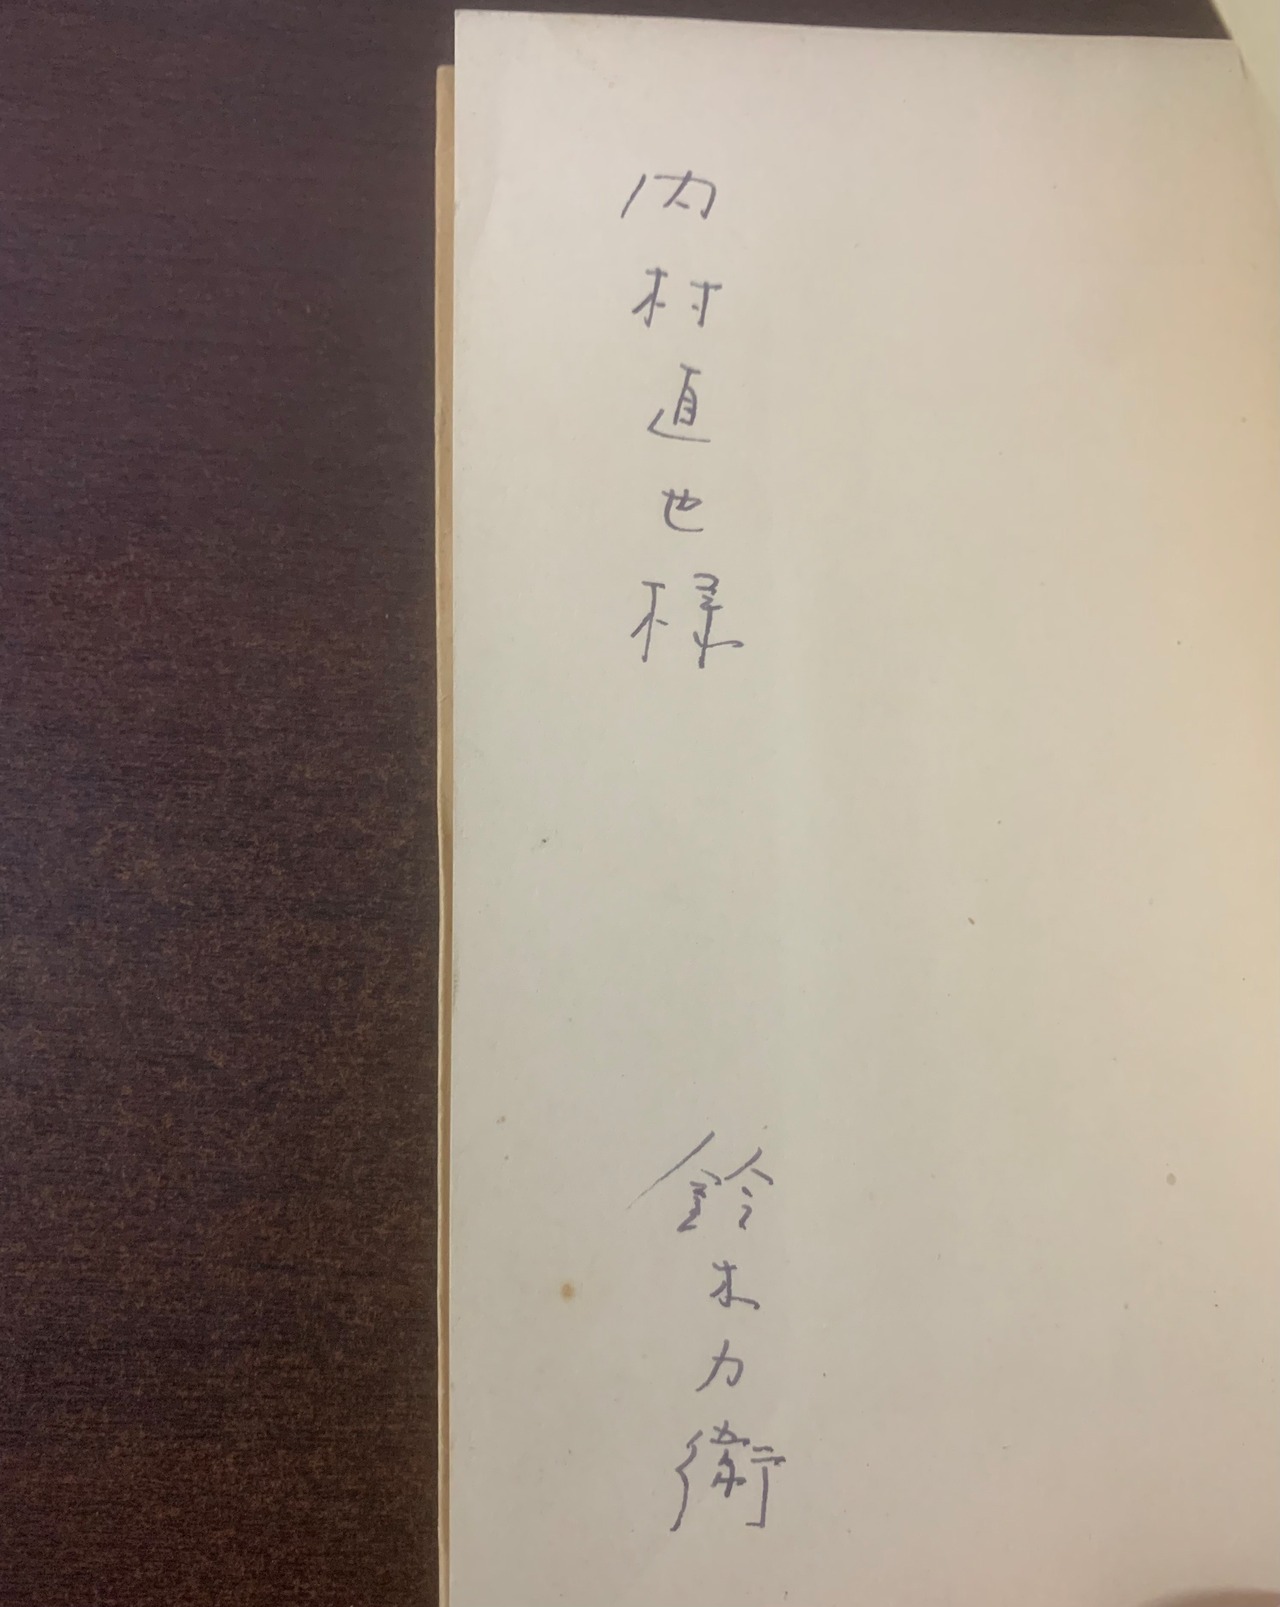 内村直也様
鈴木力衛